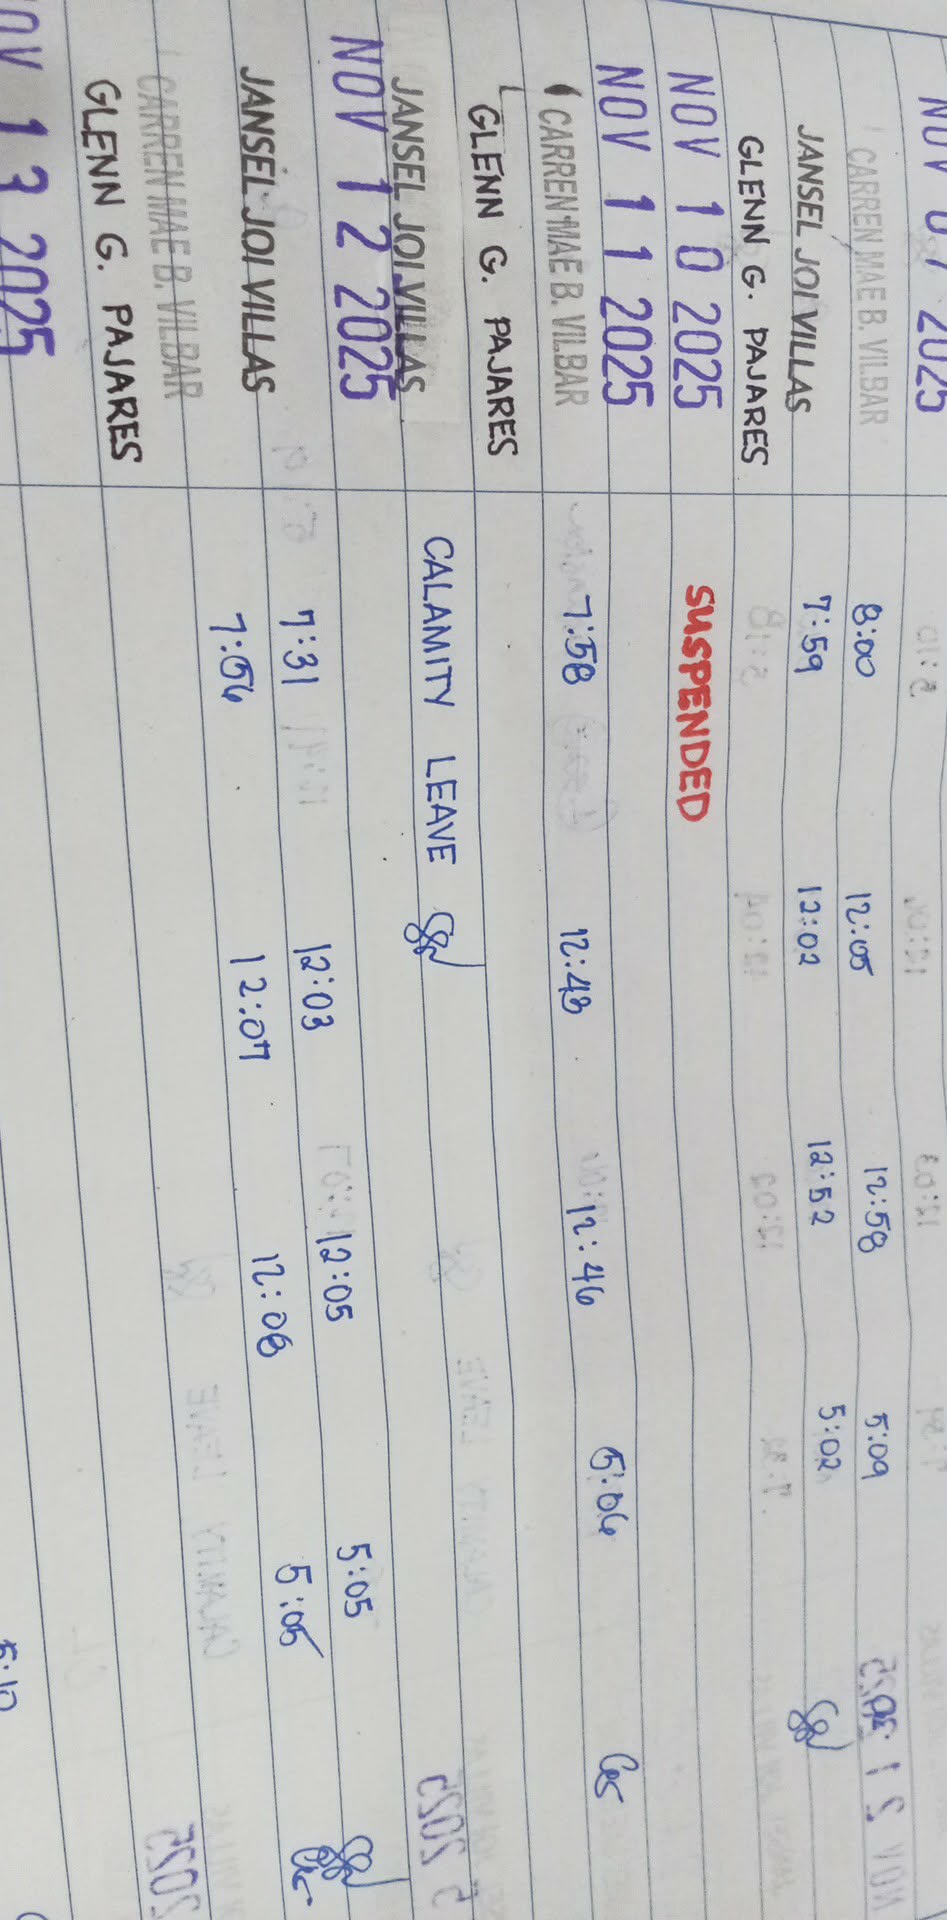 NOV 07 2025
CARREN MAE B. VILBAR 8:00 12:05 12:58 5:09
JANSEL JOI VILLAS 7:59 12:02 12:52 5:02
GLENN G. PAJARES
NOV 10 2025 SUSPENDED
NOV 11 2025
CARREN MAE B. VILBAR 7:58 12:43 12:46 5:06
GLENN G. PAJARES
JANSEL JOI VILLAS CALAMITY LEAVE
NOV 12 2025
JANSEL JOI VILLAS 7:31 12:03 12:05 5:05
CARREN MAE B. VILBAR 7:56 12:07 12:08 5:05
GLENN G. PAJARES
NOV 13 2025 5:10